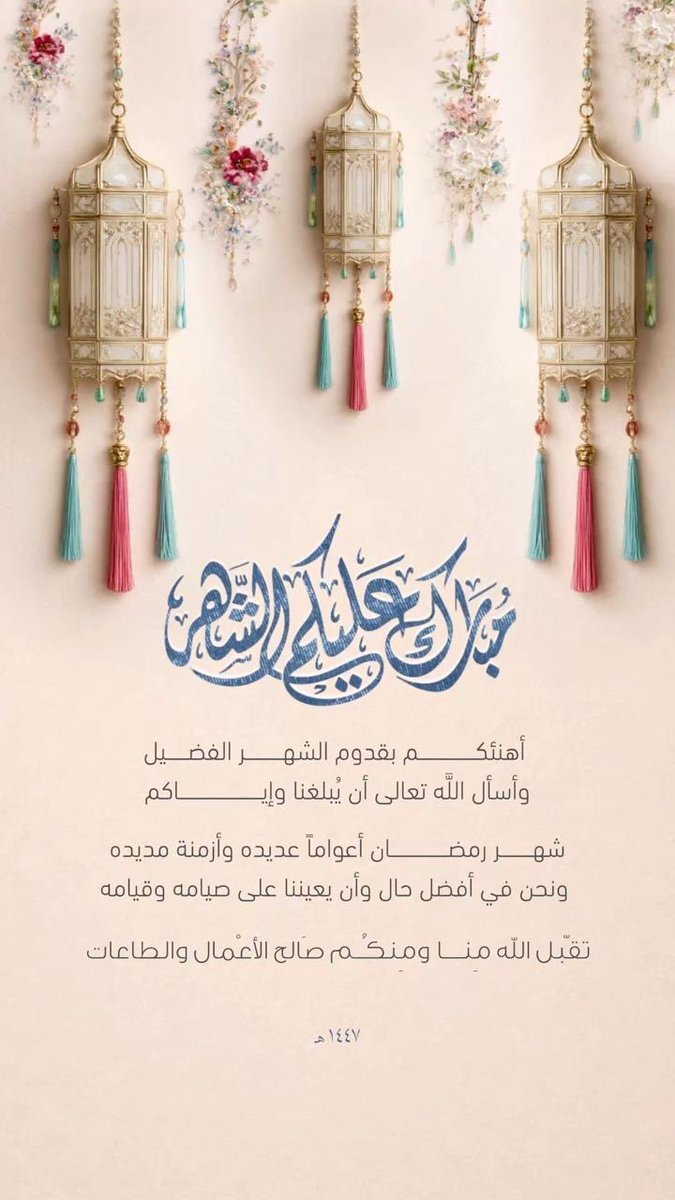 مُبَارَك عَليكُم الشَّهر
أهنئكـــــم بقدوم الشهـــر الفضـــيل
وأسأل اللَّه تعالى أن يُبلغنا وإيـــــــاكم
شهـــر رمضـــــان أعواماً عديده وأزمنة مديده
ونحن في أفضل حال وأن يعيننا على صيامه وقيامه
تقبّل اللّه مِنـــا ومِنكُـم صَالح الأعْمال والطاعات
١٤٤٧هـ